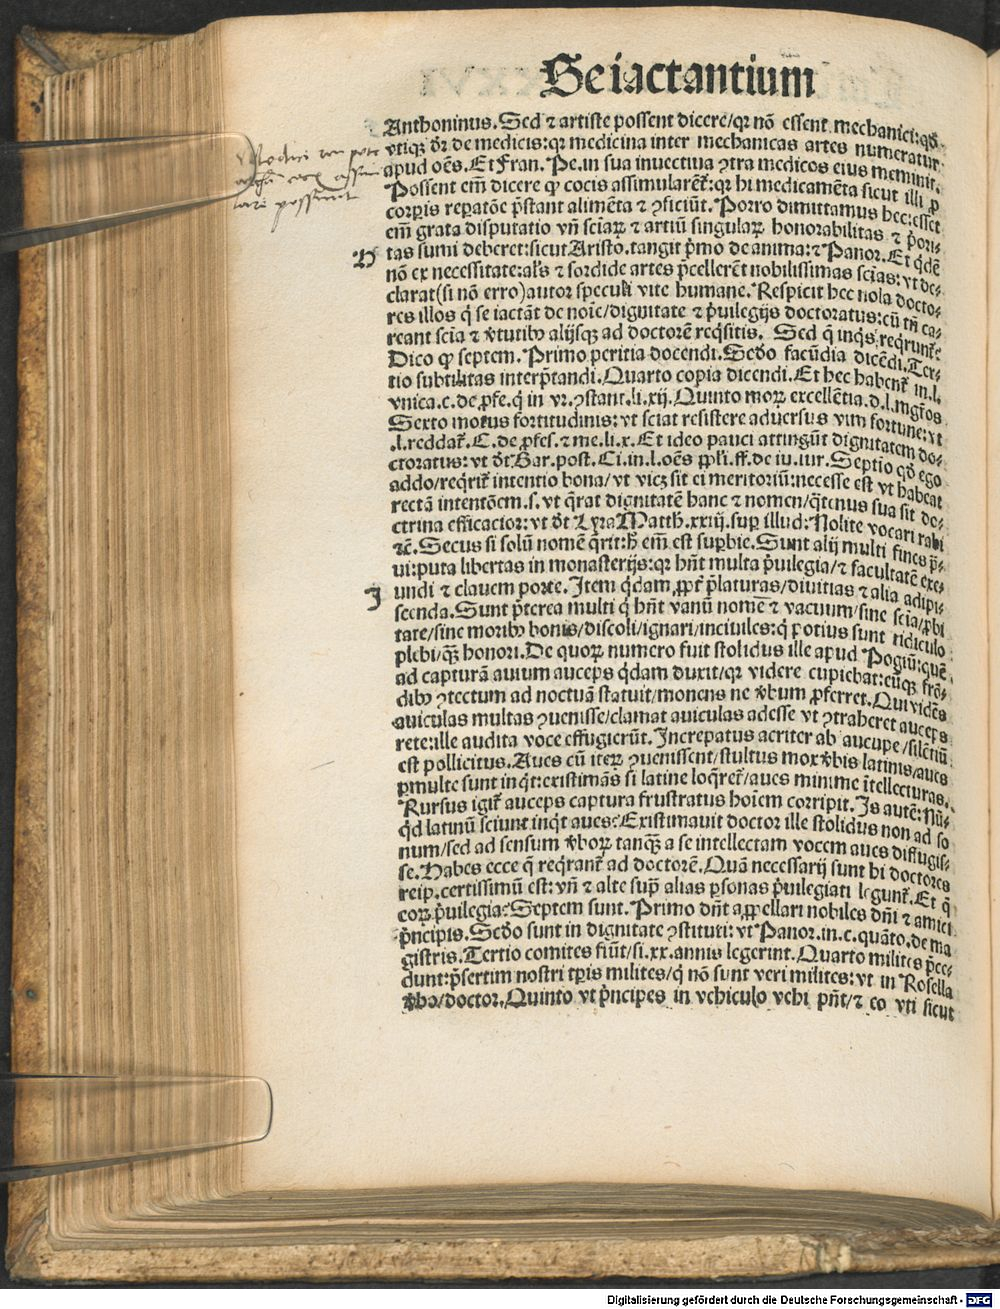 Se iactantium
Anthoninus. Sed ⁊ artiste possent dicere/qꝛ nõ essent mechanici: qđ
vtiqꝫ dꝛ̃ de medicis: qꝛ medicina inter mechanicas artes numeratur
apud oẽs. Et Fran. Pe. in sua inuectiua ꝯtra medicos eius meminit.
Possent em̃ dicere ꝙ cocis assimularẽt̃: qꝛ hi medicamẽta sicut illi ꝓ
corꝑis reꝑatõe p̃stant alimẽta ⁊ ꝯficiũt. Porro dimittamus hec: esset
em̃ grata disputatio vñ sciaꝝ ⁊ artiũ singulaꝝ honorabilitas ⁊ p̃ori⸗
H tas sumi deberet: sicut Aristo. tangit p̃mo de anima: ⁊ Panor. Et q̃dẽ
nõ ex necessitate: al's ⁊ sordide artes p̃cellerẽt nobilissimas sciẽas: vt de⸗
clarat (si nõ erro) autor speculi vite humane. Respicit hec nola docto⸗
res illos q̃ se iactãt de noĩe/dignitate ⁊ p̃uilegijs doctoratus: cũ tñ ca⸗
reant scia ⁊ v̓tutibꝰ alijsqꝫ ad doctorẽ reqsitis. Sed q̃ inqͥs reqrunt̃:
Dico ꝙ septem. Primo peritia docendi. Scd̓o facũdia dicẽdi. Ter⸗
tio subtilitas interp̃tandi. Quarto copia dicendi. Et hec habent̃ in. l.
vnica. c. de ꝓfe. q̃ in vr. ꝯstant. li. xij. Quinto moꝝ excellẽtia. d. l. mgr̃os
Sexto motus fortitudinis: vt sciat resistere aduersus vim fortune: vt
.l. reddat̃. C. de ꝓfes. ⁊ me. li. x. Et ideo pauci attingũt dignitatem do⸗
ctoratus: vt d̓t Bar. post. Ci. in. l. oẽs ppl'i. ff. de iu. iur. Septio qd̓ ego
addo/reqrit̃ intentio bona/vt vicꝫ sit ei meritoriũ: necesse est vt habeat
rectã intentõem. s. vt q̃rat dignitatẽ hanc ⁊ nomen/q̃tenus sua sit do⸗
ctrina efficacior: vt d̓t Lyra Matth. xxiij. suꝑ illud: Nolite vocari rabi
⁊c̃. Secus si solũ nomẽ q̃rit: h̓ em̃ est suꝑbie. Sunt alij multi fines p̃⸗
ui: puta libertas in monasterijs: qꝛ hñt multa p̃uilegia/⁊ facultatẽ exe⸗
J undi ⁊ clauem porte. Item q̃dam ꝓpt̃ p̃laturas/diuitias ⁊ alia adipi⸗
scenda. Sunt p̃terea multi q̃ hñt vanũ nomẽ ⁊ vacuum/sine scia/ꝓbi
tate/sine moribꝰ bonis/discoli/ignari/inciuiles: q̃ potius sunt ridiculo
plebi/qꝫ̃ honori. De quoꝝ numero fuit stolidus ille apud Pogiũ: quẽ
ad capturã auium auceps q̃dam duxit/qꝛ videre cupiebat: eũqꝫ frõ⸗
dibꝰ ꝯtectum ad noctuã statuit/monens ne v̓bum ꝓferret. Qui vidẽs
auiculas multas ꝯuenisse/clamat auiculas adesse vt ꝯtraheret auceps
rete: ille audita voce effugierũt. Increpatus acriter ab aucupe/silẽtiũ
est pollicitus. Aues cũ iteꝝ ꝯuenissent/stultus mox v̓bis latinis/aues
ꝑmulte sunt inq̃t: existimãs si latine loq̃ret̃/aues minime ĩtellecturas.
Rursus igit̃ auceps captura frustratus hoĩem corripit. Is autẽ: Nũ⸗
q̃d latinũ sciunt inq̃t aues? Existimauit doctor ille stolidus non ad so
num/sed ad sensum v̓boꝝ tanqꝫ̃ a se intellectam vocem aues diffugis⸗
se. Habes ecce q̃ reqrant̃ ad doctorẽ. Quã necessarij sunt hi doctores
reip. certissimũ est: vñ ⁊ alte suꝑ alias ꝑsonas p̃uilegiati legunt̃. Et q̃
eoꝝ p̃uilegia? Septem sunt. Primo dñt appellari nobiles dñi ⁊ amici
p̃ncipis. Scd̓o sunt in dignitate ꝯstituti: vt Panor. in. c. quãto. de ma
gistris. Tertio comites fiũt/si. xx. annis legerint. Quarto milites p̃ce⸗
dunt: p̃sertim nostri tꝑis milites/q̃ nõ sunt veri milites: vt in Rosella
v̓bo/doctor. Quinto vt p̃ncipes in vehiculo vehi pñt/⁊ eo vti sicut
Digitalisierung gefördert durch die Deutsche Forschungsgemeinschaft - DFG